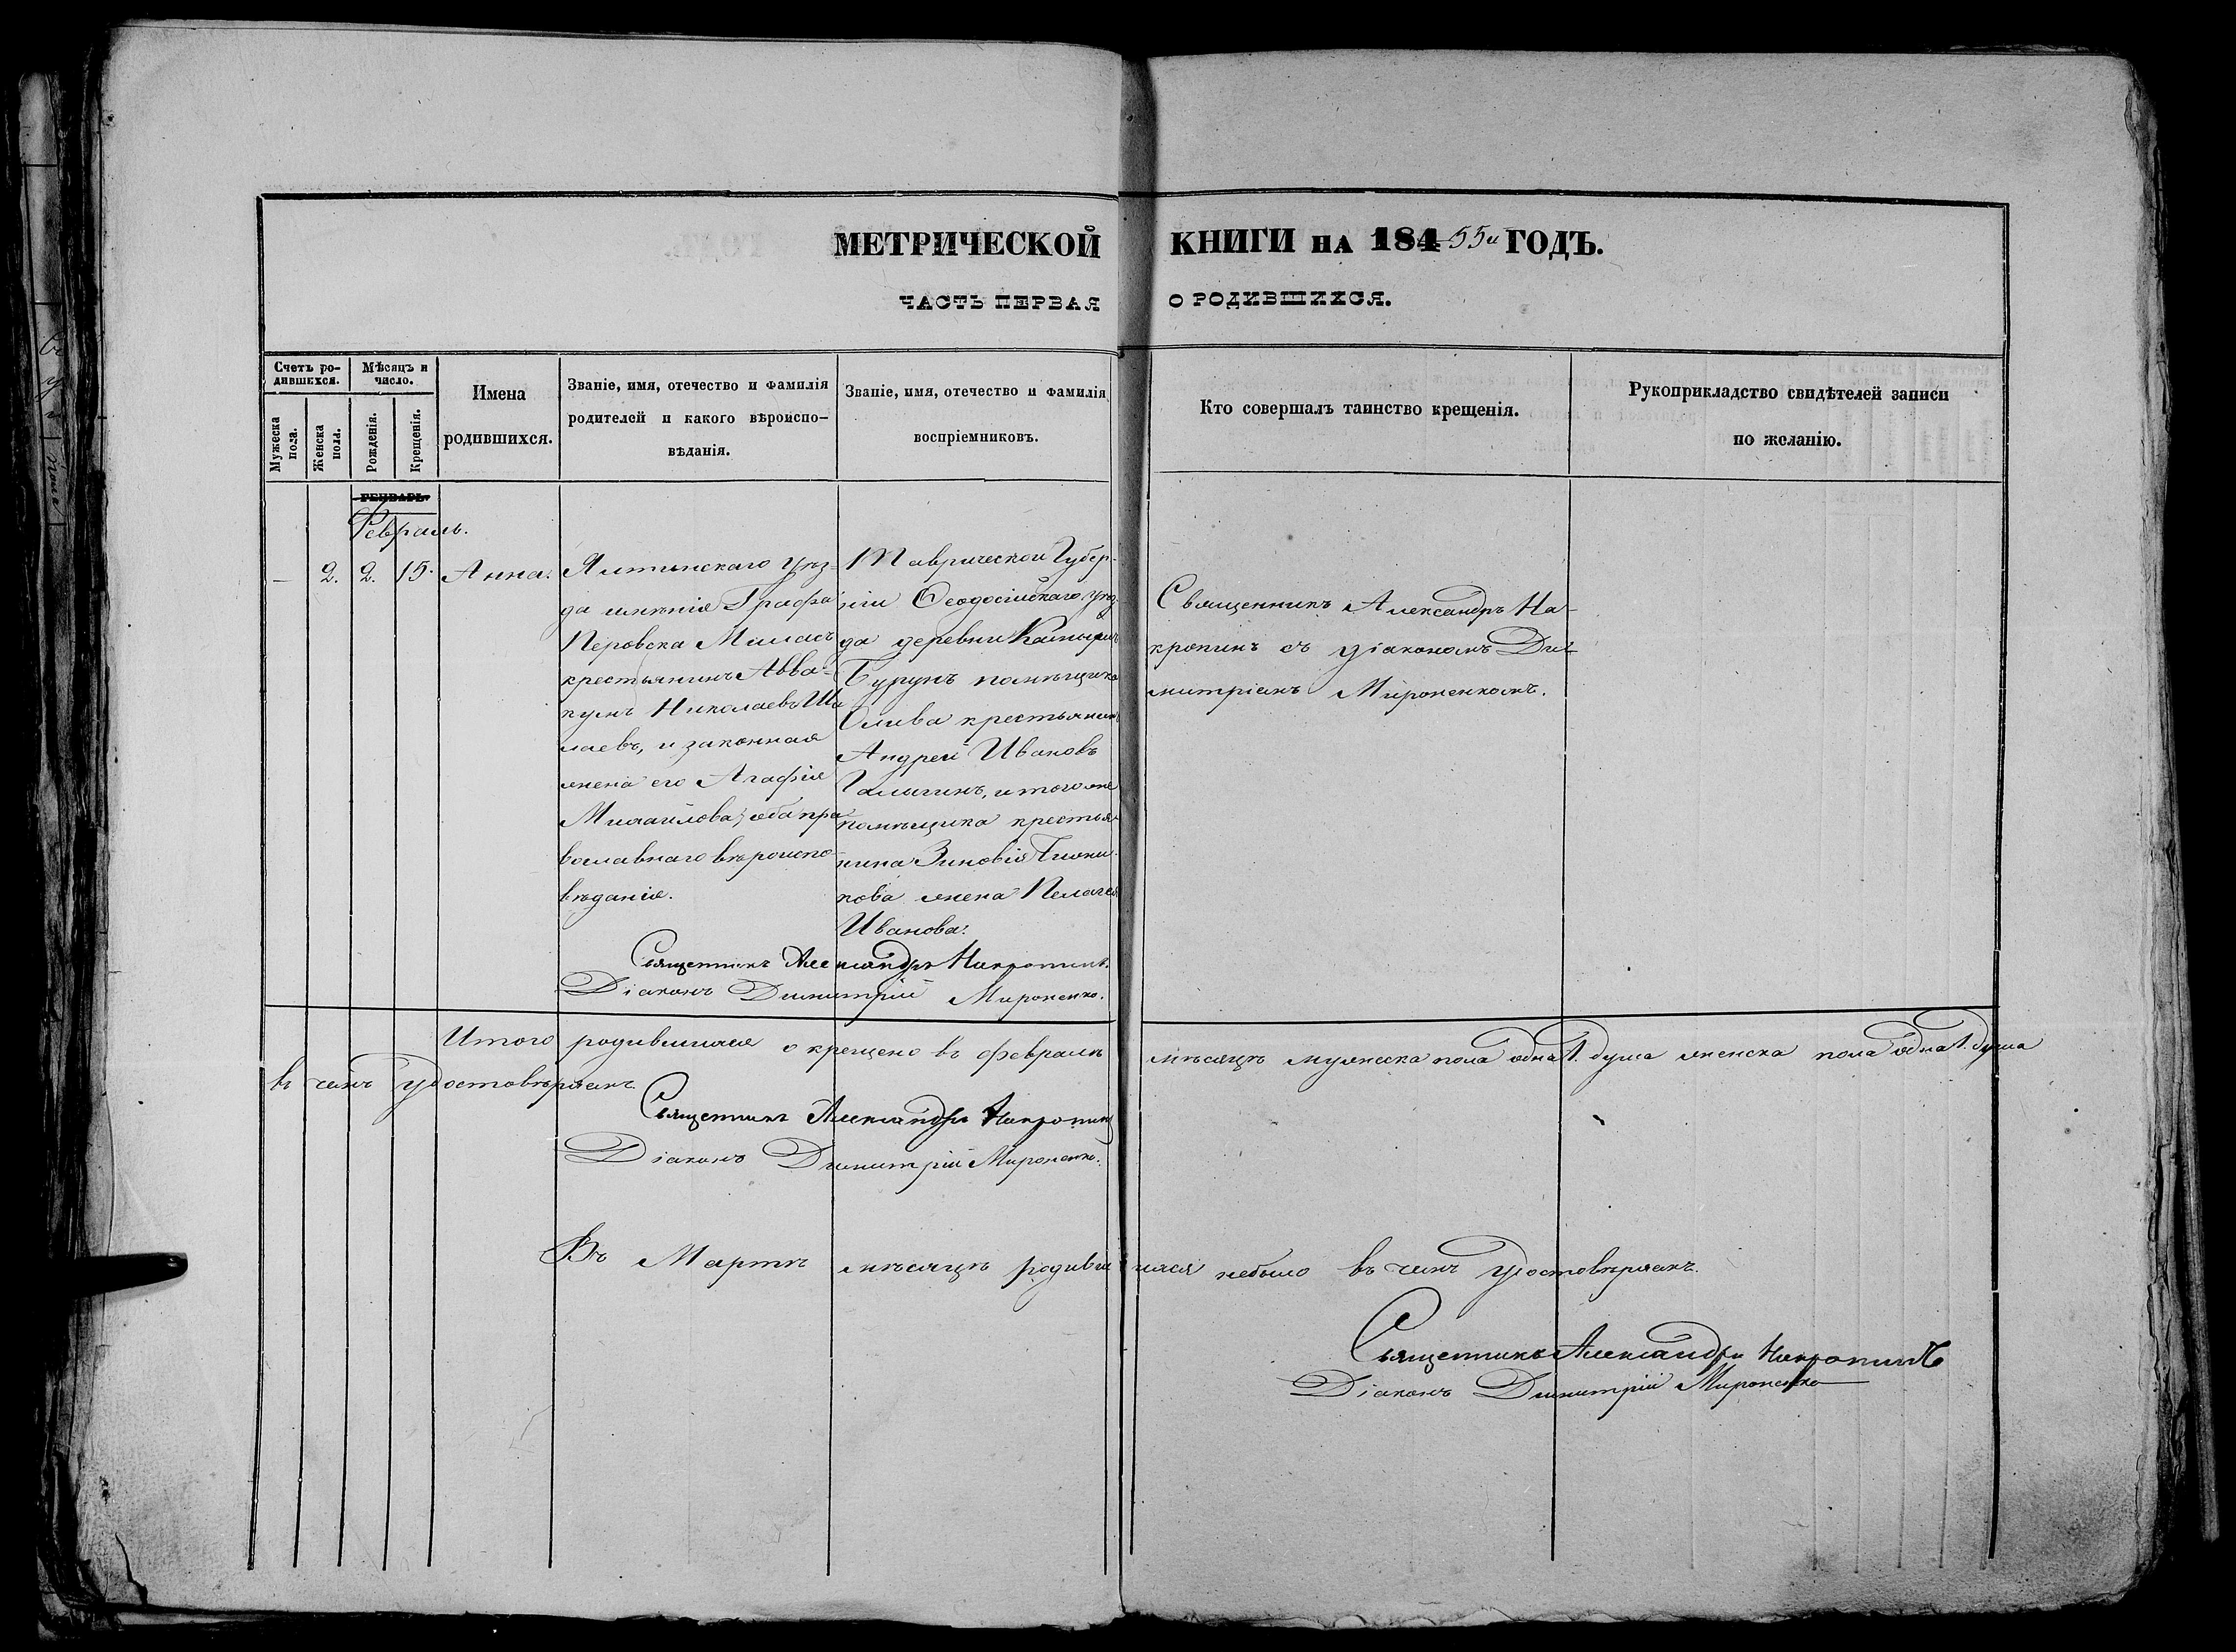 МЕТРИЧЕСКОЙ КНИГИ НА 184 55й ГОДЪ.
ЧАСТЬ ПЕРВАЯ О РОДИВШИХСЯ.
Счетъ ро-
дившихся.
Мужеска
пола.
Женска
пола.
Мѣсяцъ и
число.
Рожденія.
Крещенія.
Имена
родившихся.
Званіе, имя, отечество и фамилія
родителей и какого вѣроиспо-
вѣданія.
Званіе, имя, отечество и фамилія
воспріемниковъ.
Кто совершалъ таинство крещенія.
Рукоприкладство свидѣтелей записи
по желанію.
Февраль.
— 2. 2. 15. Анна.
Ялтинскаго Уѣз-
да имѣнія Графа
Перовска Маласъ
крестьянинъ Авва-
кумъ Николаевъ Ша
лаевъ, и законная
жена его Агафія
Михайлова, оба пра
вославнаго вѣроиспо-
вѣданія.
Таврической Губер-
ніи Ѳеодосійскаго уѣз-
да деревни
Бурунъ помѣщика
Олива крестьянинъ
Андрей Ивановъ
Галигинъ, и того же
помѣщика крестья-
нина Зиновія
кова жена Пелагея
Иванова.
Священникъ Александръ На-
кропинъ съ діакономъ Ди-
митріемъ Мироненкомъ.
Священникъ Александръ Накропинъ.
Діаконъ Димитрій Мироненко.
Итого родившихся о крещено въ февралѣ мѣсяцѣ мужеска пола одна 1. душа женска пола одна 1. душа
въ чемъ удостовѣряемъ.
Священникъ Александръ Накропинъ
Діаконъ Димитрій Мироненко.
Въ Мартѣ мѣсяцѣ родившихся небыло въ чемъ удостовѣряемъ.
Священникъ Александръ Накропинъ
Діаконъ Димитрій Мироненко